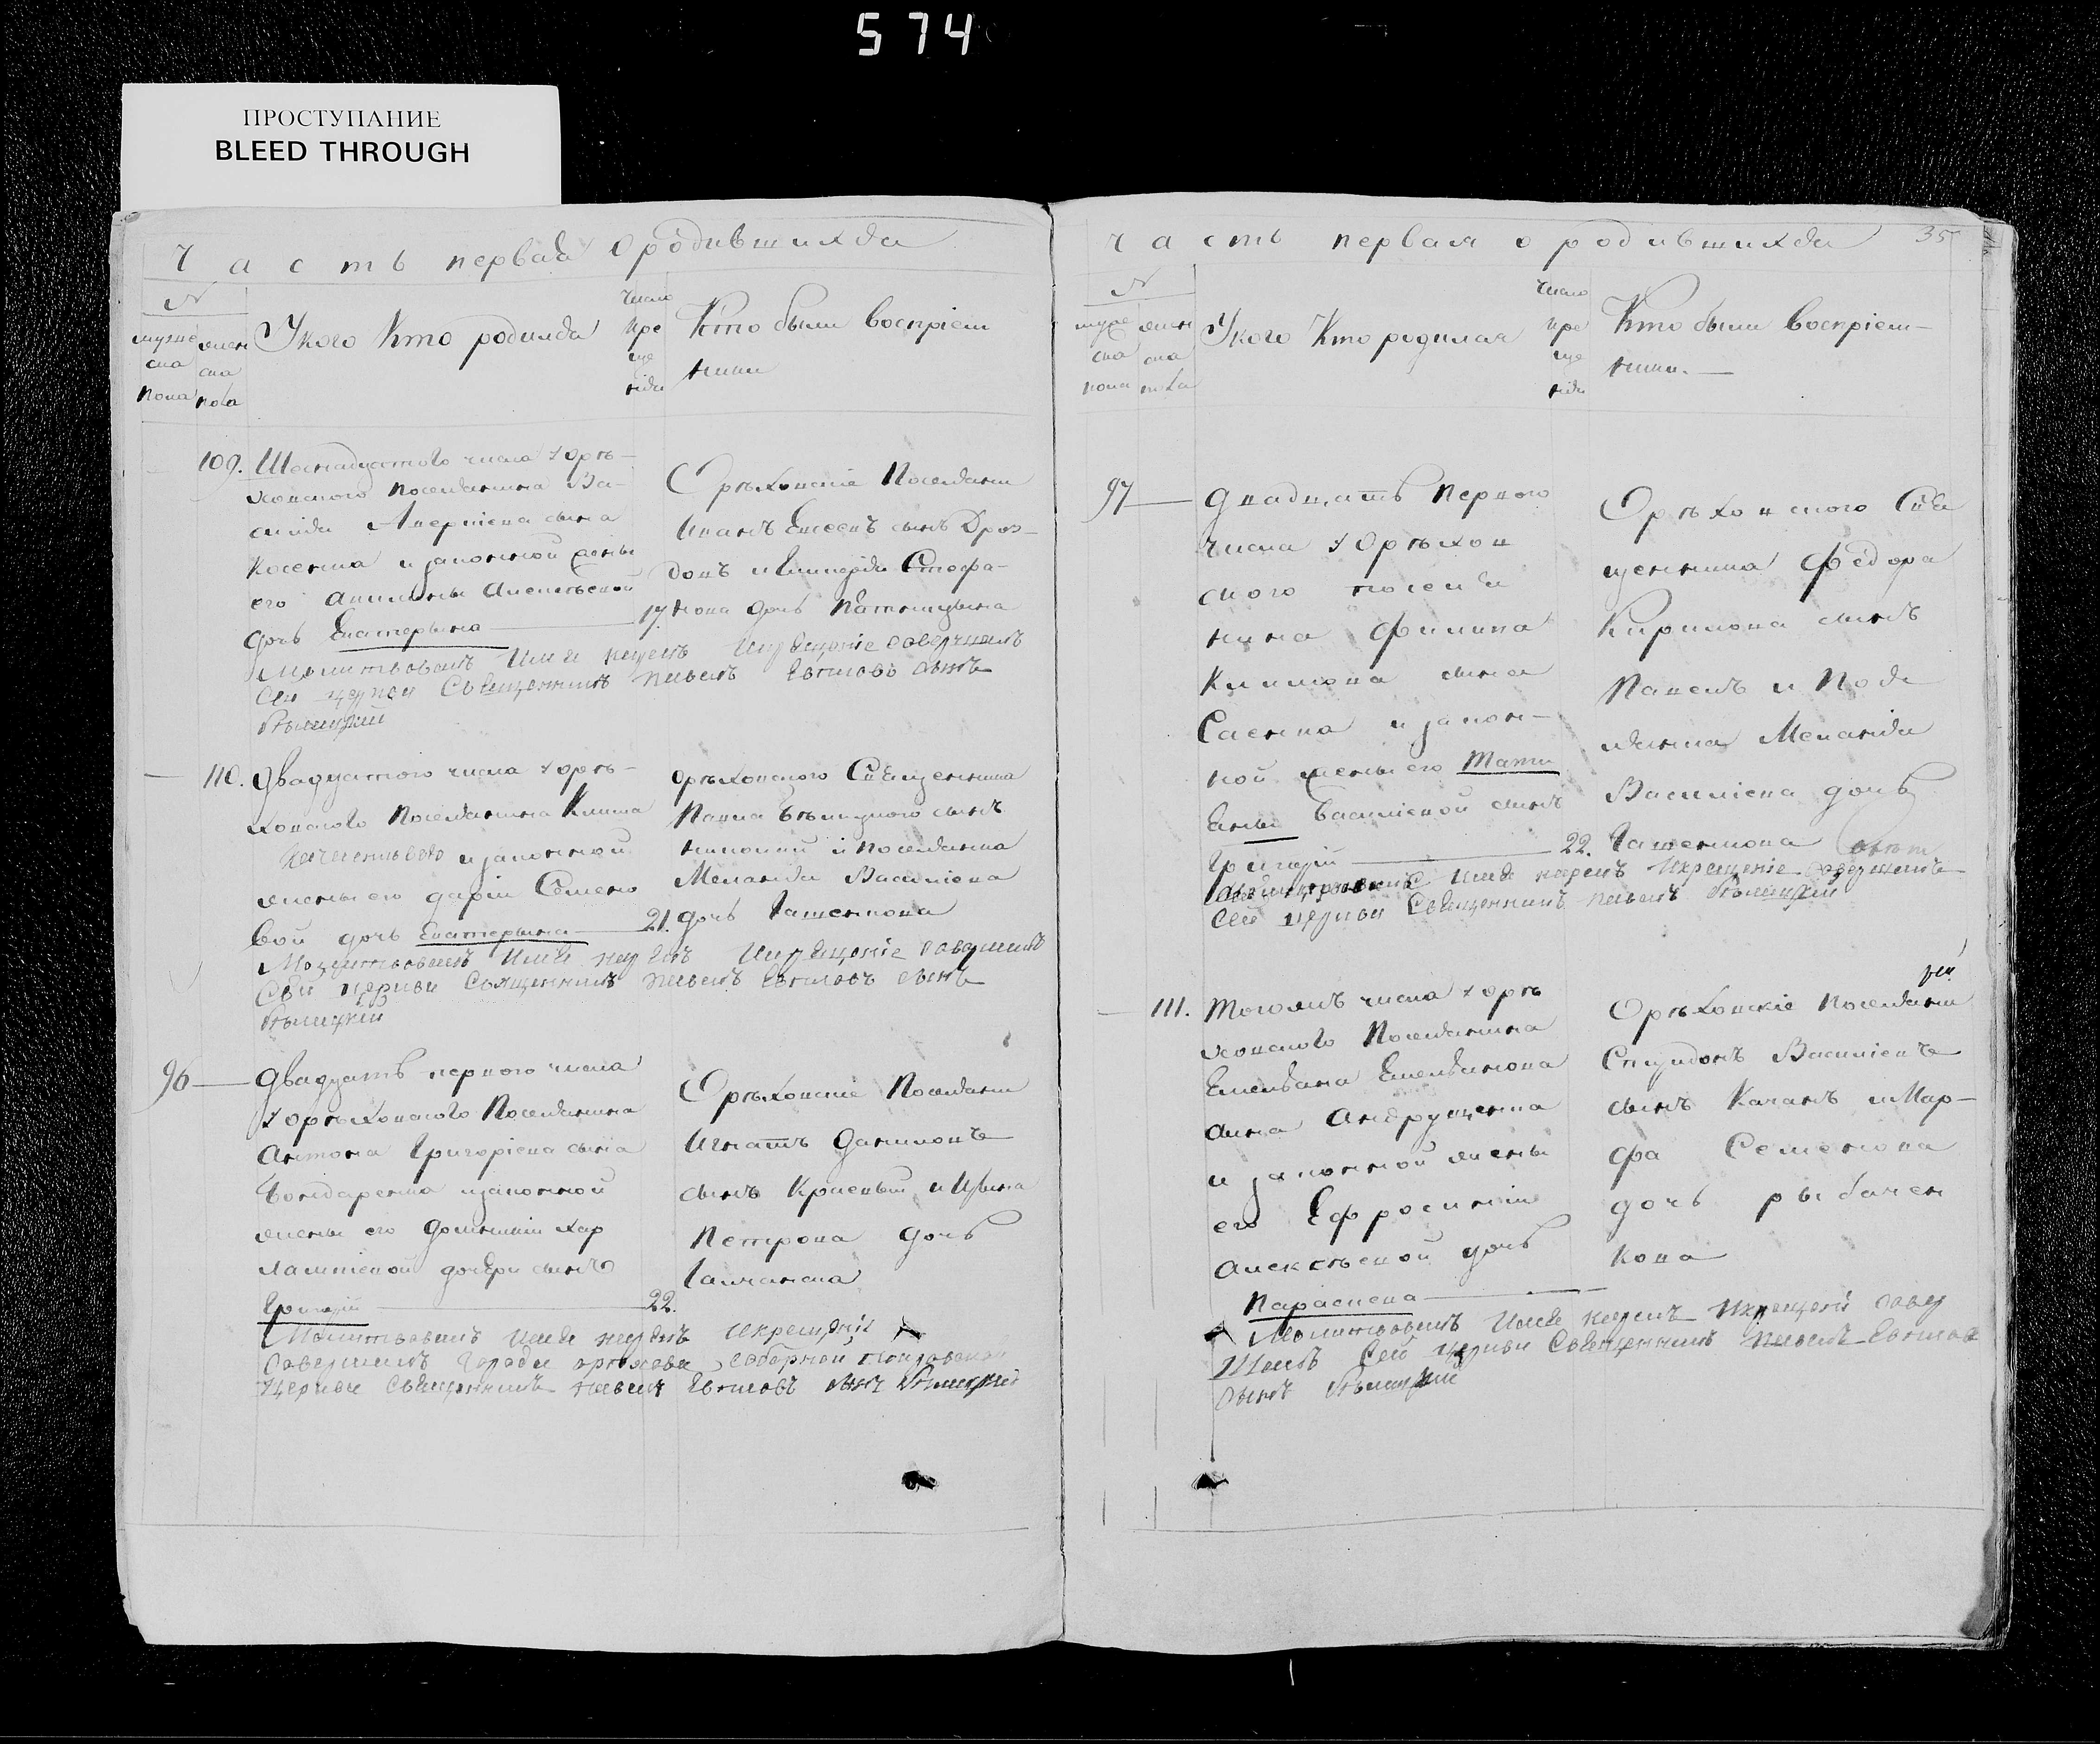 574
ПРОСТУПАНИЕ
BLEED THROUGH
Часть первая о родившихся
№
мужеска пола
женска пола
У кого кто родился
число крещенія
Кто были воспріемники
109. Шеснадцатого числа У орѣ-
ховского поселянина Ва-
силія Аверкіева сына
Косенка и законной жены
его Акилины Алексѣевой
дочь Екатерина 17.
Орѣховскіе Поселяни
Иванъ Елесеевъ сынъ Дроз-
довъ и Гликерія Стефа-
нова дочь Пятницына
Молитвовалъ имя нарекъ и крещеніе совершилъ
сей церкви Священникъ Павелъ Евтиховъ сынъ
Бѣлицкій
110. Двадцатого числа У орѣ-
ховского Поселянина Клима
и законной
жены его Даріи Семено
вой дочь Екатерина 21.
Орѣховского Священника
Павла Бѣлицкого сынъ
Николай и поселянка
Меланія Василіева
дочь Ващенкова
Молитвовалъ имя нарекъ и крещеніе совершилъ
Сей церкви Священникъ Павелъ Евтиховъ сынъ
Бѣлицкій
96 Двадцать первого числа
У орѣховского Поселянина
Антона Григоріева сына
Бондаренка и законной
жены его Домникіи Хар
лампіевой дочери сынъ
Григорій 22.
Орѣховскіе Поселяни
Игнатъ Даниловъ
сынъ Красный и Ирина
Петрова дочь
Молитвовалъ имя нарекъ и крещеніе
совершилъ города орѣхова соборной Покровской
церкви Священникъ Павелъ Евтиховъ сынъ Бѣлицкій
часть первая о родившихся
35
№
мужеска пола
женска пола
У кого кто родился
число крещенія
Кто были воспріемники.
97 Двадцать первого
числа У Орѣхов
ского поселя
нина Филипа
Климова сына
Саенка и закон-
ной жены его Тати
яны Василіевой сынъ
Григорій 22.
Орѣховского Свя
щенника Федора
Кирилова сынъ
Павелъ и Посе
лянка Меланія
Василіева дочь
Ващенкова
имя нарекъ и крещеніе совершилъ
сей церкви Священникъ Павелъ Бѣлицкій
111. Тогожъ числа У орѣ
ховского Поселянина
Емелiана Емелiанова
сына Андрущенка
и законной жены
его Ефросиніи
Алексѣевой дочь
Параскева
Орѣховскіе Поселяни
Спиридонъ Василіевъ
сынъ Качанъ и Мар-
фа Семенова
дочь рыбачен
кова
Молитвовалъ имя нарекъ и крещеніе совер
шилъ сей церкви Священникъ Павелъ Евтихов
сынъ Бѣлицкій